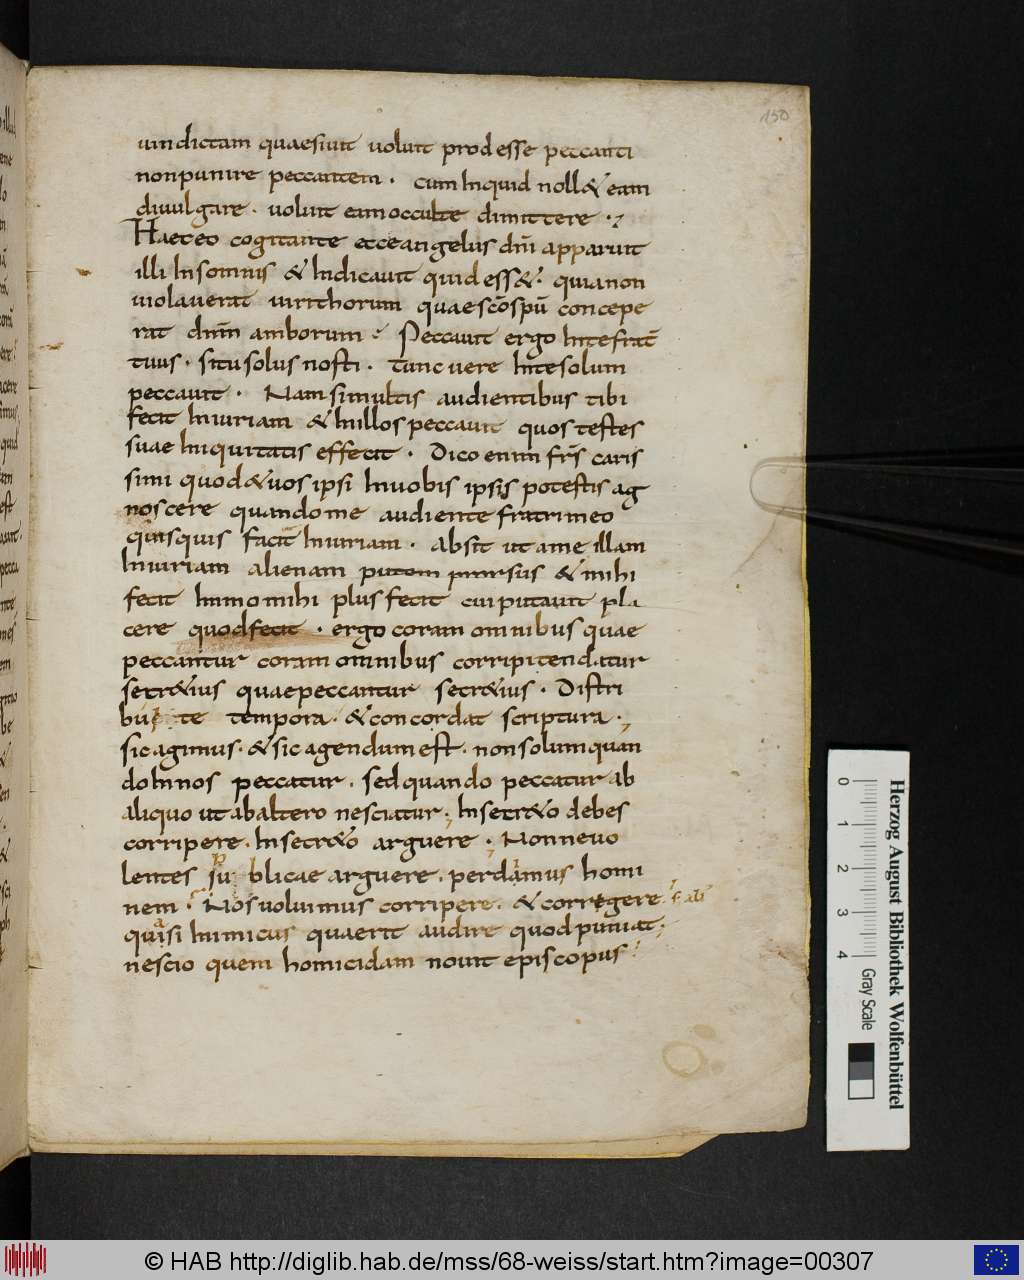 150
uindictam quaesiuit uoluit prodesse peccanti
nonpunire peccantem . cum Inquid noll& eam
diuulgare . uoluit eam occulte dimittere .
Haec eo cogitante ecce angelus dn̄i apparuit
illi Insomnis & Indicauit quid ess& . quia non
uiolauerat uiri thorum quae sc̄o spū concepe
rat dn̄m amborum . Peccauit ergo Inte frat̄
tuus . situ solus nosti . tunc uere Inte solum
peccauit . Nam simultis audientibus tibi
fecit Iniuriam & Inillos peccauit quos testes
suae Iniquitatis effecit . Dico enim fr̄s caris
simi quod & uos ipsi Inuobis ipsis potestis ag
noscere quando me audiente fratri meo
quisquis facit Iniuriam . absit ut ame illam
Iniuriam alienam putem prursus & mihi
fecit Immo mihi plus fecit cui putauit pla
cere quod fecit . ergo coram omnibus quae
peccantur coram omnibus corripitendatur
secr&ius quae peccantur secr&ius . Distri
bu te tempora . & concordat scriptura .
sic agimus . & sic agendum est . non solum quan
do Innos peccatur . sed quando peccatur ab
aliquo ut abaltero nesciatur . Insecr&o debes
corripere . Insecr&o arguere . Non neuo
lentes pu blicae arguere . perdamus homi
nem . Nos uoluimus corripere . & corregere
quasi Inimicus quaerit audire quod puniat
nescio quem homicidam nouit episcopus
Herzog August Bibliothek Wolfenbüttel
0 1 2 3 4 Gray Scale
© HAB http://diglib.hab.de/mss/68-weiss/start.htm?image=00307